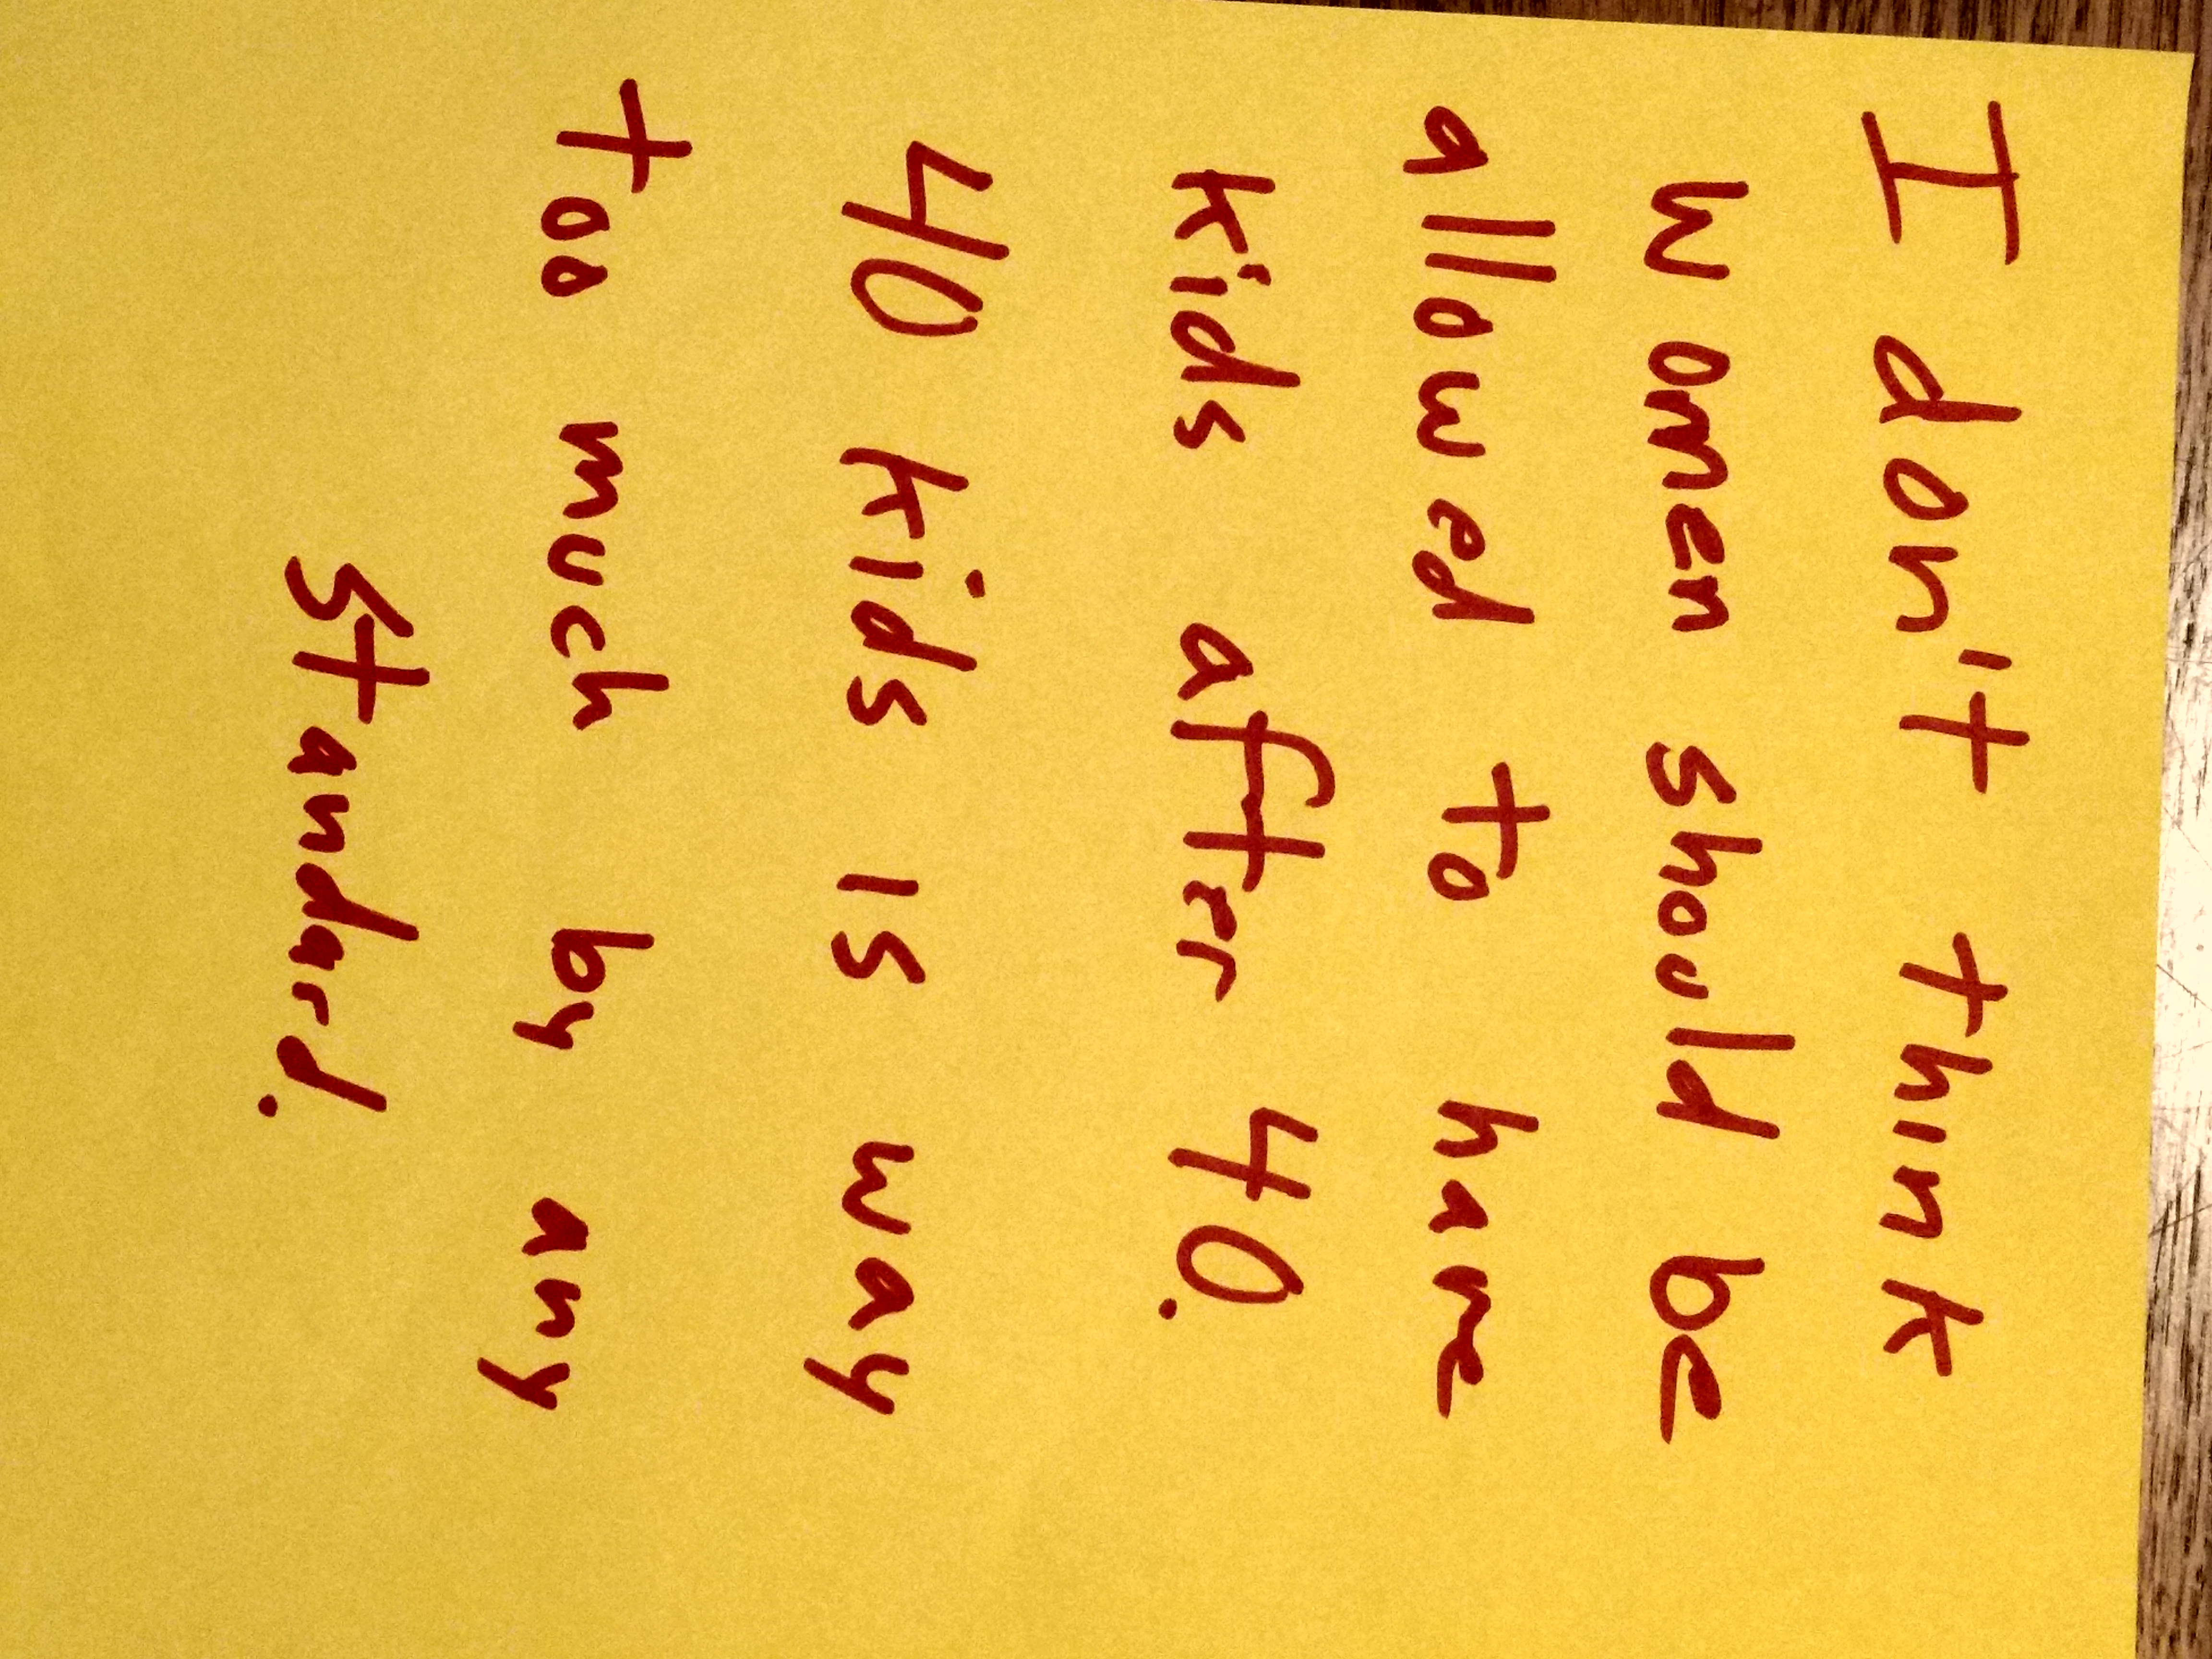 I don't think
women should be
allowed to have
kids after 40.
40 kids is way
too much by any
standard.